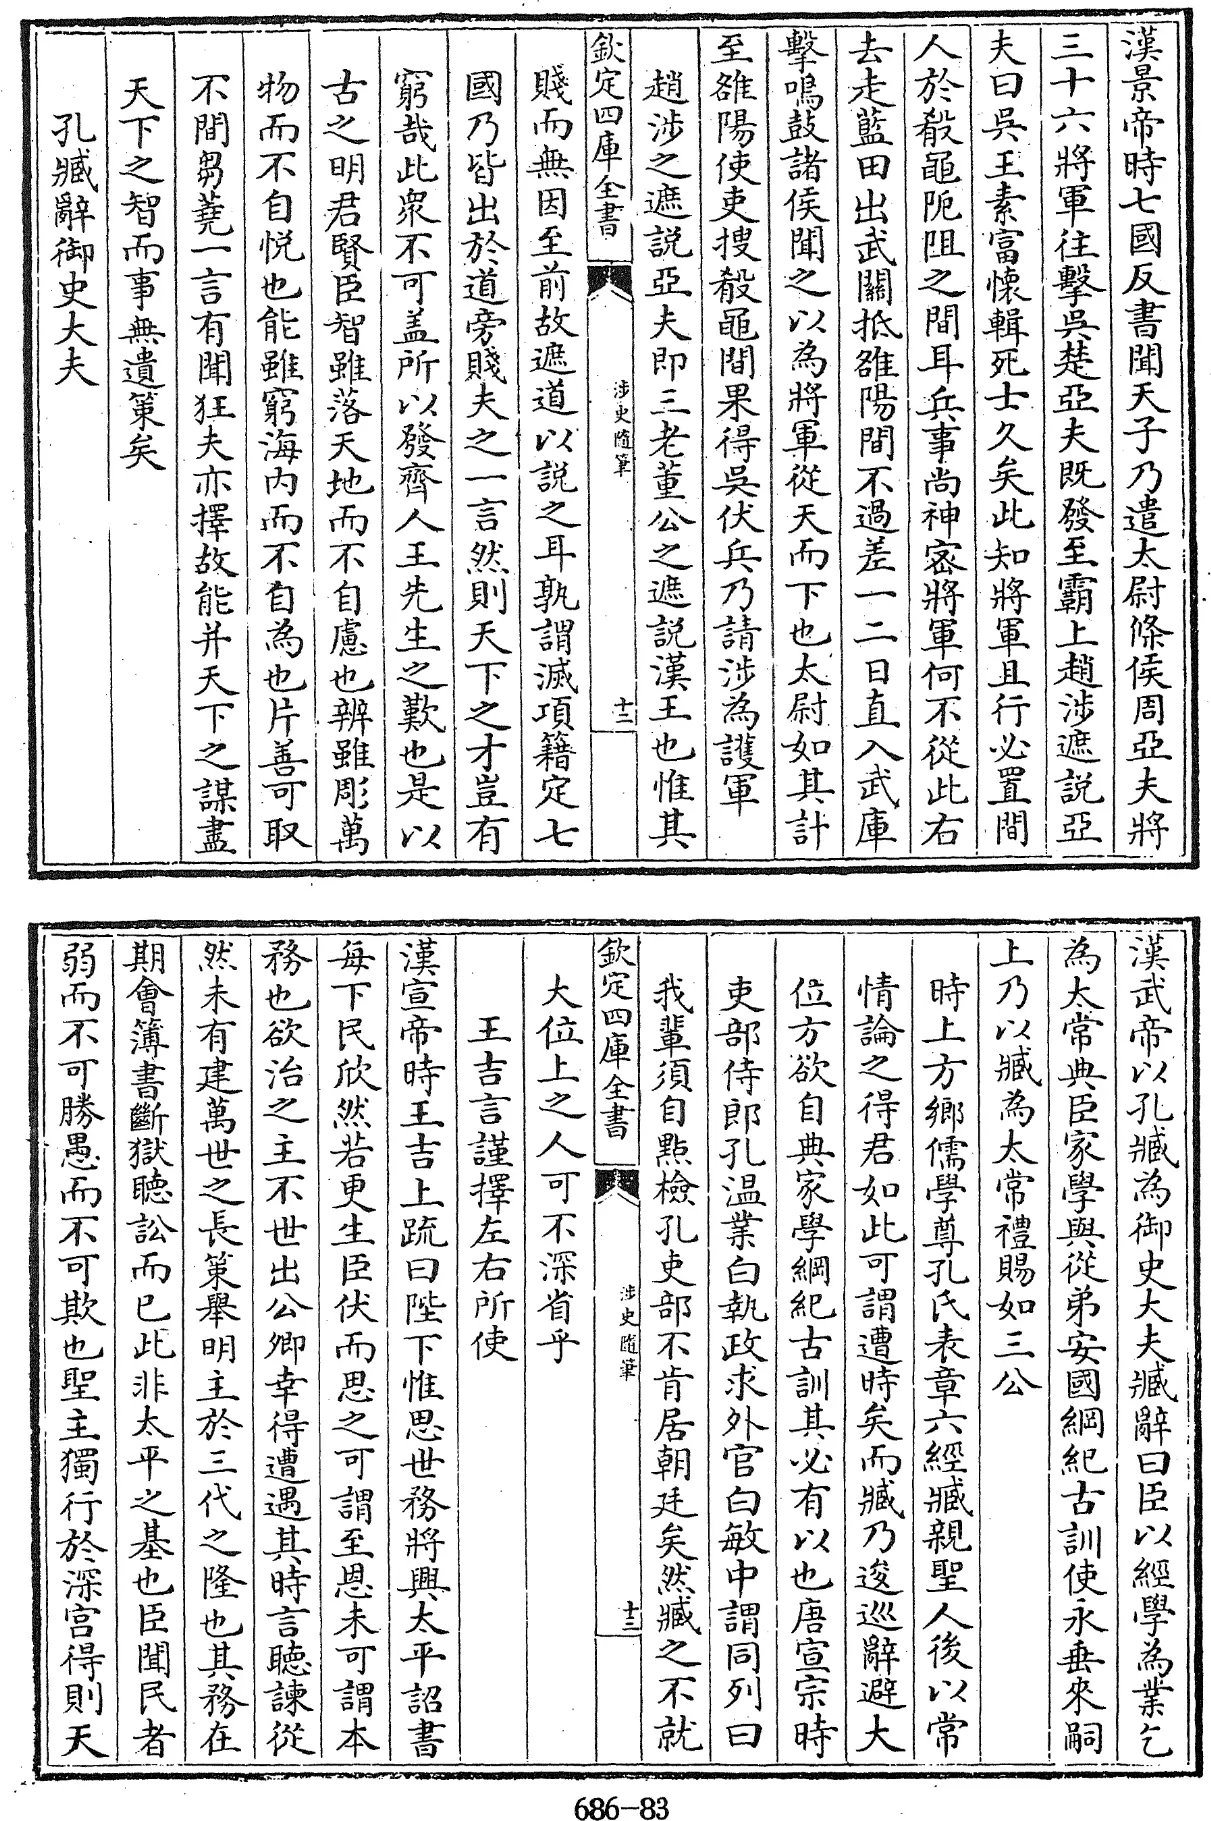 漢景帝時七國反書聞天子乃遣太尉條侯周亞夫將
三十六將軍往擊吳楚亞夫既發至霸上趙涉遮説亞
夫曰吳王素富懷輯死士久矣此知將軍且行必置間
人於殽黽阨阻之間耳兵事尚神宻將軍何不從此右
去走藍田出武關抵雒陽間不過差一二日直入武庫
擊鳴鼓諸侯聞之以為將軍從天而下也太尉如其計
至雒陽使吏搜殽黽間果得吳伏兵乃請涉為護軍
趙涉之遮説亞夫即三老董公之遮説漢王也惟其
欽定四庫全書
涉史隨筆
十二
賤而無因至前故遮道以説之耳孰謂滅項籍定七
國乃皆出於道旁賤夫之一言然則天下之才豈有
窮哉此衆不可盖所以發齊人王先生之歎也是以
古之明君賢臣智雖落天地而不自慮也辨雖彫萬
物而不自悦也能雖窮海内而不自為也片善可取
不間芻蕘一言有聞狂夫亦擇故能并天下之謀盡
天下之智而事無遺策矣
孔臧辭御史大夫
漢武帝以孔臧為御史大夫臧辭曰臣以經學為業乞
為太常典臣家學與從弟安國綱紀古訓使永垂來嗣
上乃以臧為太常禮賜如三公
時上方鄉儒學尊孔氏表章六經臧親聖人後以常
情論之得君如此可謂遭時矣而臧乃逡巡辭避大
位方欲自典家學綱紀古訓其必有以也唐宣宗時
吏部侍郎孔温業白執政求外官白敏中謂同列曰
我輩須自㸃檢孔吏部不肯居朝廷矣然臧之不就
欽定四庫全書
涉史隨筆
十三
大位上之人可不深省乎
王吉言謹擇左右所使
漢宣帝時王吉上疏曰陛下惟思世務將興太平詔書
每下民欣然若更生臣伏而思之可謂至恩未可謂本
務也欲治之主不世出公卿幸得遭遇其時言聽諫從
然未有建萬世之長策舉明主於三代之隆也其務在
期會簿書斷獄聽訟而已此非太平之基也臣聞民者
弱而不可勝愚而不可欺也聖主獨行於深宫得則天
686-83